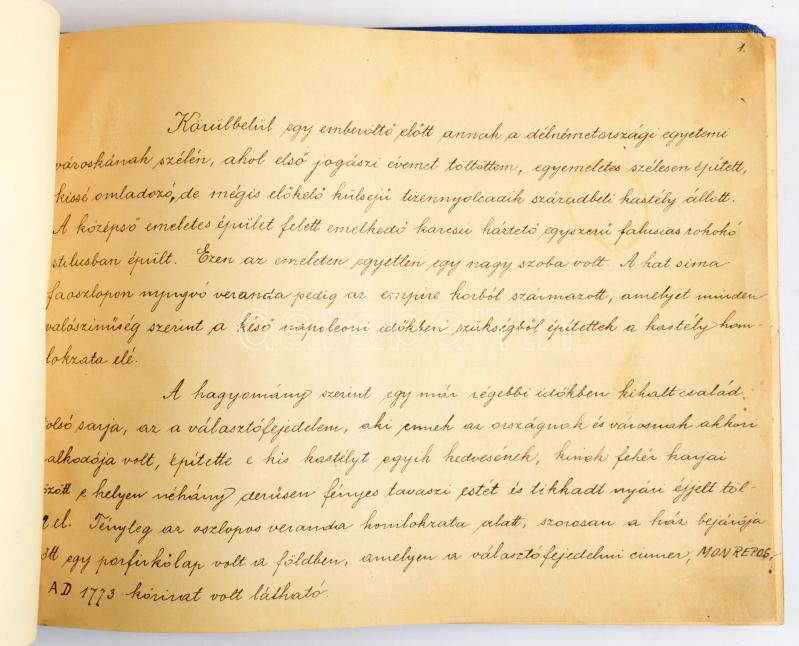 1.
Körülbelül egy emberöltő előtt annak a délnémetországi egyetemi
városkának szélén, ahol első jogászi évemet töltöttem, egyemeletes szélesen épített,
kissé omladozó, de mégis előkelő külsejű tizennyolcadik századbeli kastély állott.
A középső emeletes épület felett emelkedő karcsú háztető egyszerű falusias rokokó
stílusban épült. Ezen az emeleten egyetlen egy nagy szoba volt. A hat sima
faoszlopon nyugvó veranda pedig az empire korból származott, amelyet minden
valószinűség szerint a késő napoleoni időkben szükségből építettek a kastély hom-
lokzata elé.
A hagyomány szerint egy már régebbi időkben kihalt család
tolsó sarja, az a választófejedelem, aki ennek az országnak és városnak akkori
alkodója volt, építette e kis kastélyt egyik kedvesének, kinek fehér karjai
özött e helyen néhány derűsen fényes tavaszi estét és tikkadt nyári éjjelt töl-
el. Tényleg az oszlopos veranda homlokzata alatt, szorosan a ház bejárója
őtt egy porfirkőlap volt a földben, amelyen a választófejedelmi cimer, MON REPOS,
AD 1773 körirat volt látható.
darabanth